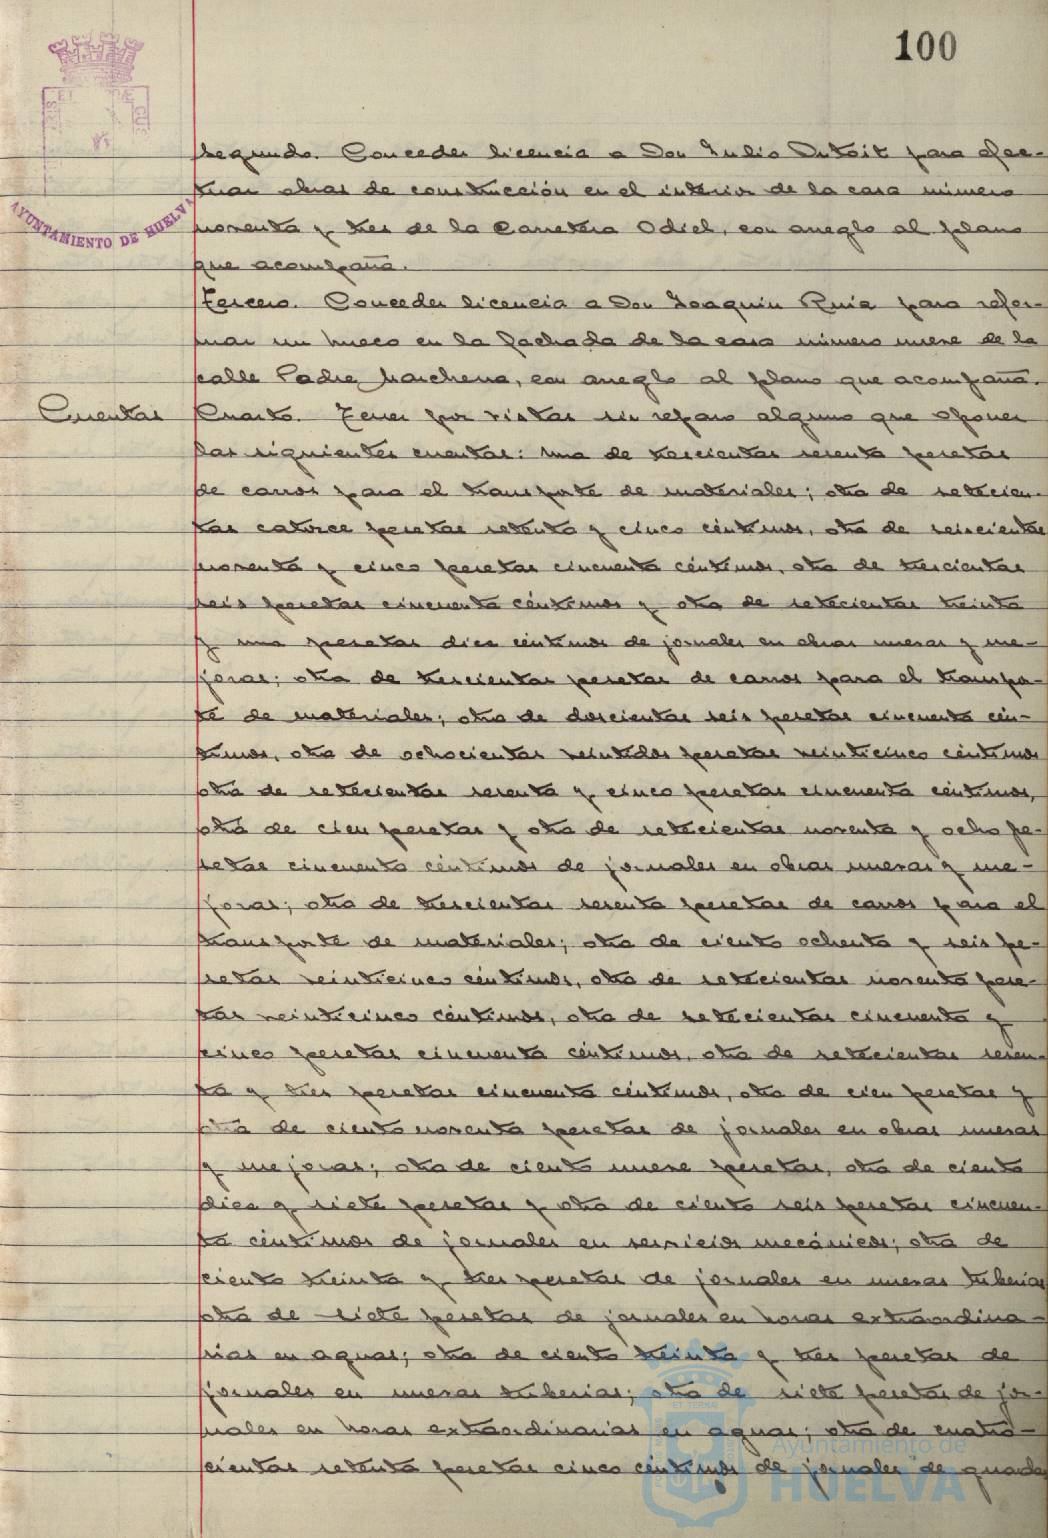 100
AYUNTAMIENTO DE HUELVA
Segundo. Conceder licencia a Don Julio Dutoit para efec-
tuar obras de construcción en el interior de la casa número
noventa y tres de la Carretera Odiel, con arreglo al plano
que acompaña.
Tercero. Conceder licencia a Don Joaquin Ruiz para refor-
mar un hueco en la fachada de la casa número nueve de la
calle Padre Marchena, con arreglo al plano que acompaña.
Cuentas
Cuarto. Tener por vistas sin reparo alguno que oponer
las siguientes cuentas: una de trescientas sesenta pesetas
de carros para el transporte de materiales; otra de setecien-
tas catorce pesetas setenta y cinco céntimos, otra de seiscientas
noventa y cinco pesetas cincuenta céntimos, otra de trescientas
seis pesetas cincuenta céntimos y otra de setecientas treinta
y una pesetas diez céntimos de jornales en obras nuevas y me-
joras; otra de trescientas pesetas de carros para el transpor-
te de materiales; otra de doscientas seis pesetas cincuenta cén-
timos, otra de ochocientas veintidos pesetas veinticinco céntimos
otra de setecientas sesenta y cinco pesetas cincuenta céntimos,
otra de cien pesetas y otra de setecientas noventa y ocho pe-
setas cincuenta céntimos de jornales en obras nuevas y me-
joras; otra de trescientas sesenta pesetas de carros para el
transporte de materiales; otra de ciento ochenta y seis pe-
setas veinticinco céntimos, otra de setecientas noventa pese-
tas veinticinco céntimos, otra de setecientas cincuenta y
cinco pesetas cincuenta céntimos, otra de setecientas sesen-
ta y tres pesetas cincuenta céntimos, otra de cien pesetas y
otra de ciento noventa pesetas de jornales en obras nuevas
y mejoras; otra de ciento nueve pesetas, otra de ciento
diez y siete pesetas y otra de ciento seis pesetas cincuen-
ta céntimos de jornales en servicios mecánicos; otra de
ciento treinta y tres pesetas de jornales en nuevas tuberias
otra de siete pesetas de jornales en horas extraordina-
rias en aguas; otra de ciento treinta y tres pesetas de
jornales en nuevas tuberias; otra de siete pesetas de jor-
nales en horas extraordinarias en aguas; otra de cuatro-
cientas setenta pesetas cinco céntimos de jornales de guardas
Ayuntamiento de
HUELVA